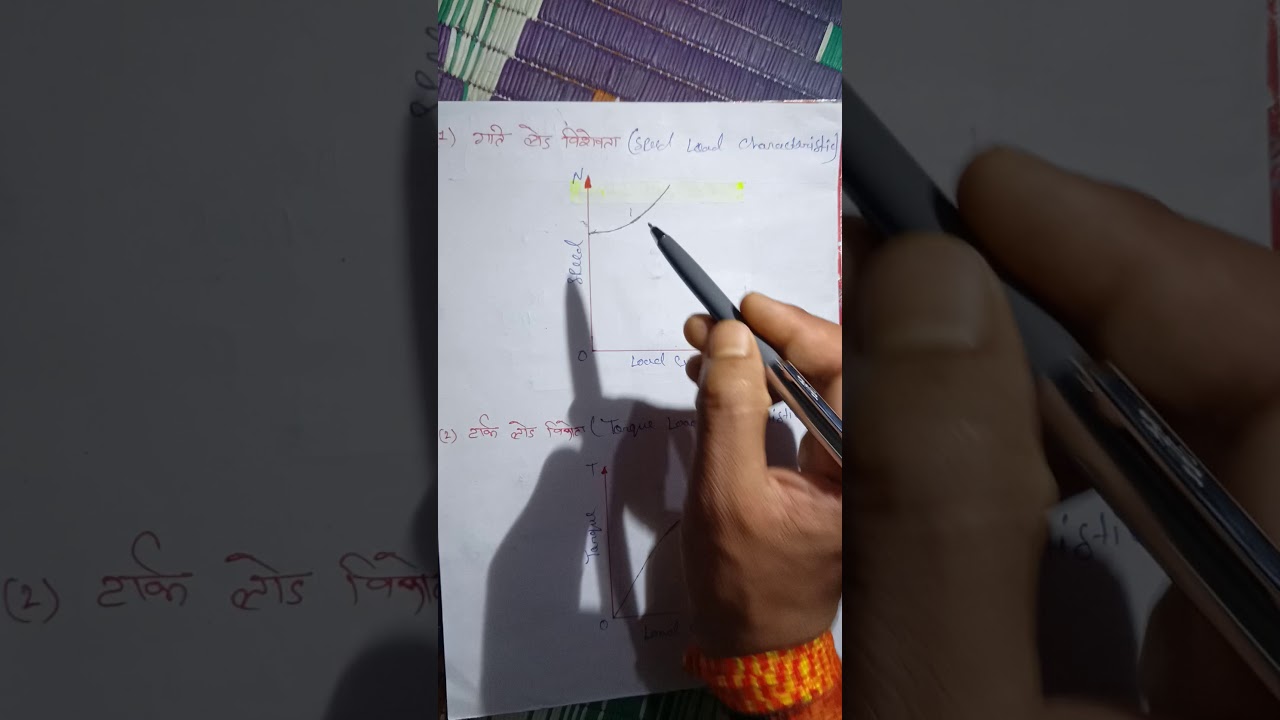 1) गति लोड विशेषता (Speed Load Characteristic)
N
1
Speed
O
Load
(2) टार्क लोड विशेषता (Torque Load
T
Torque
O
Load